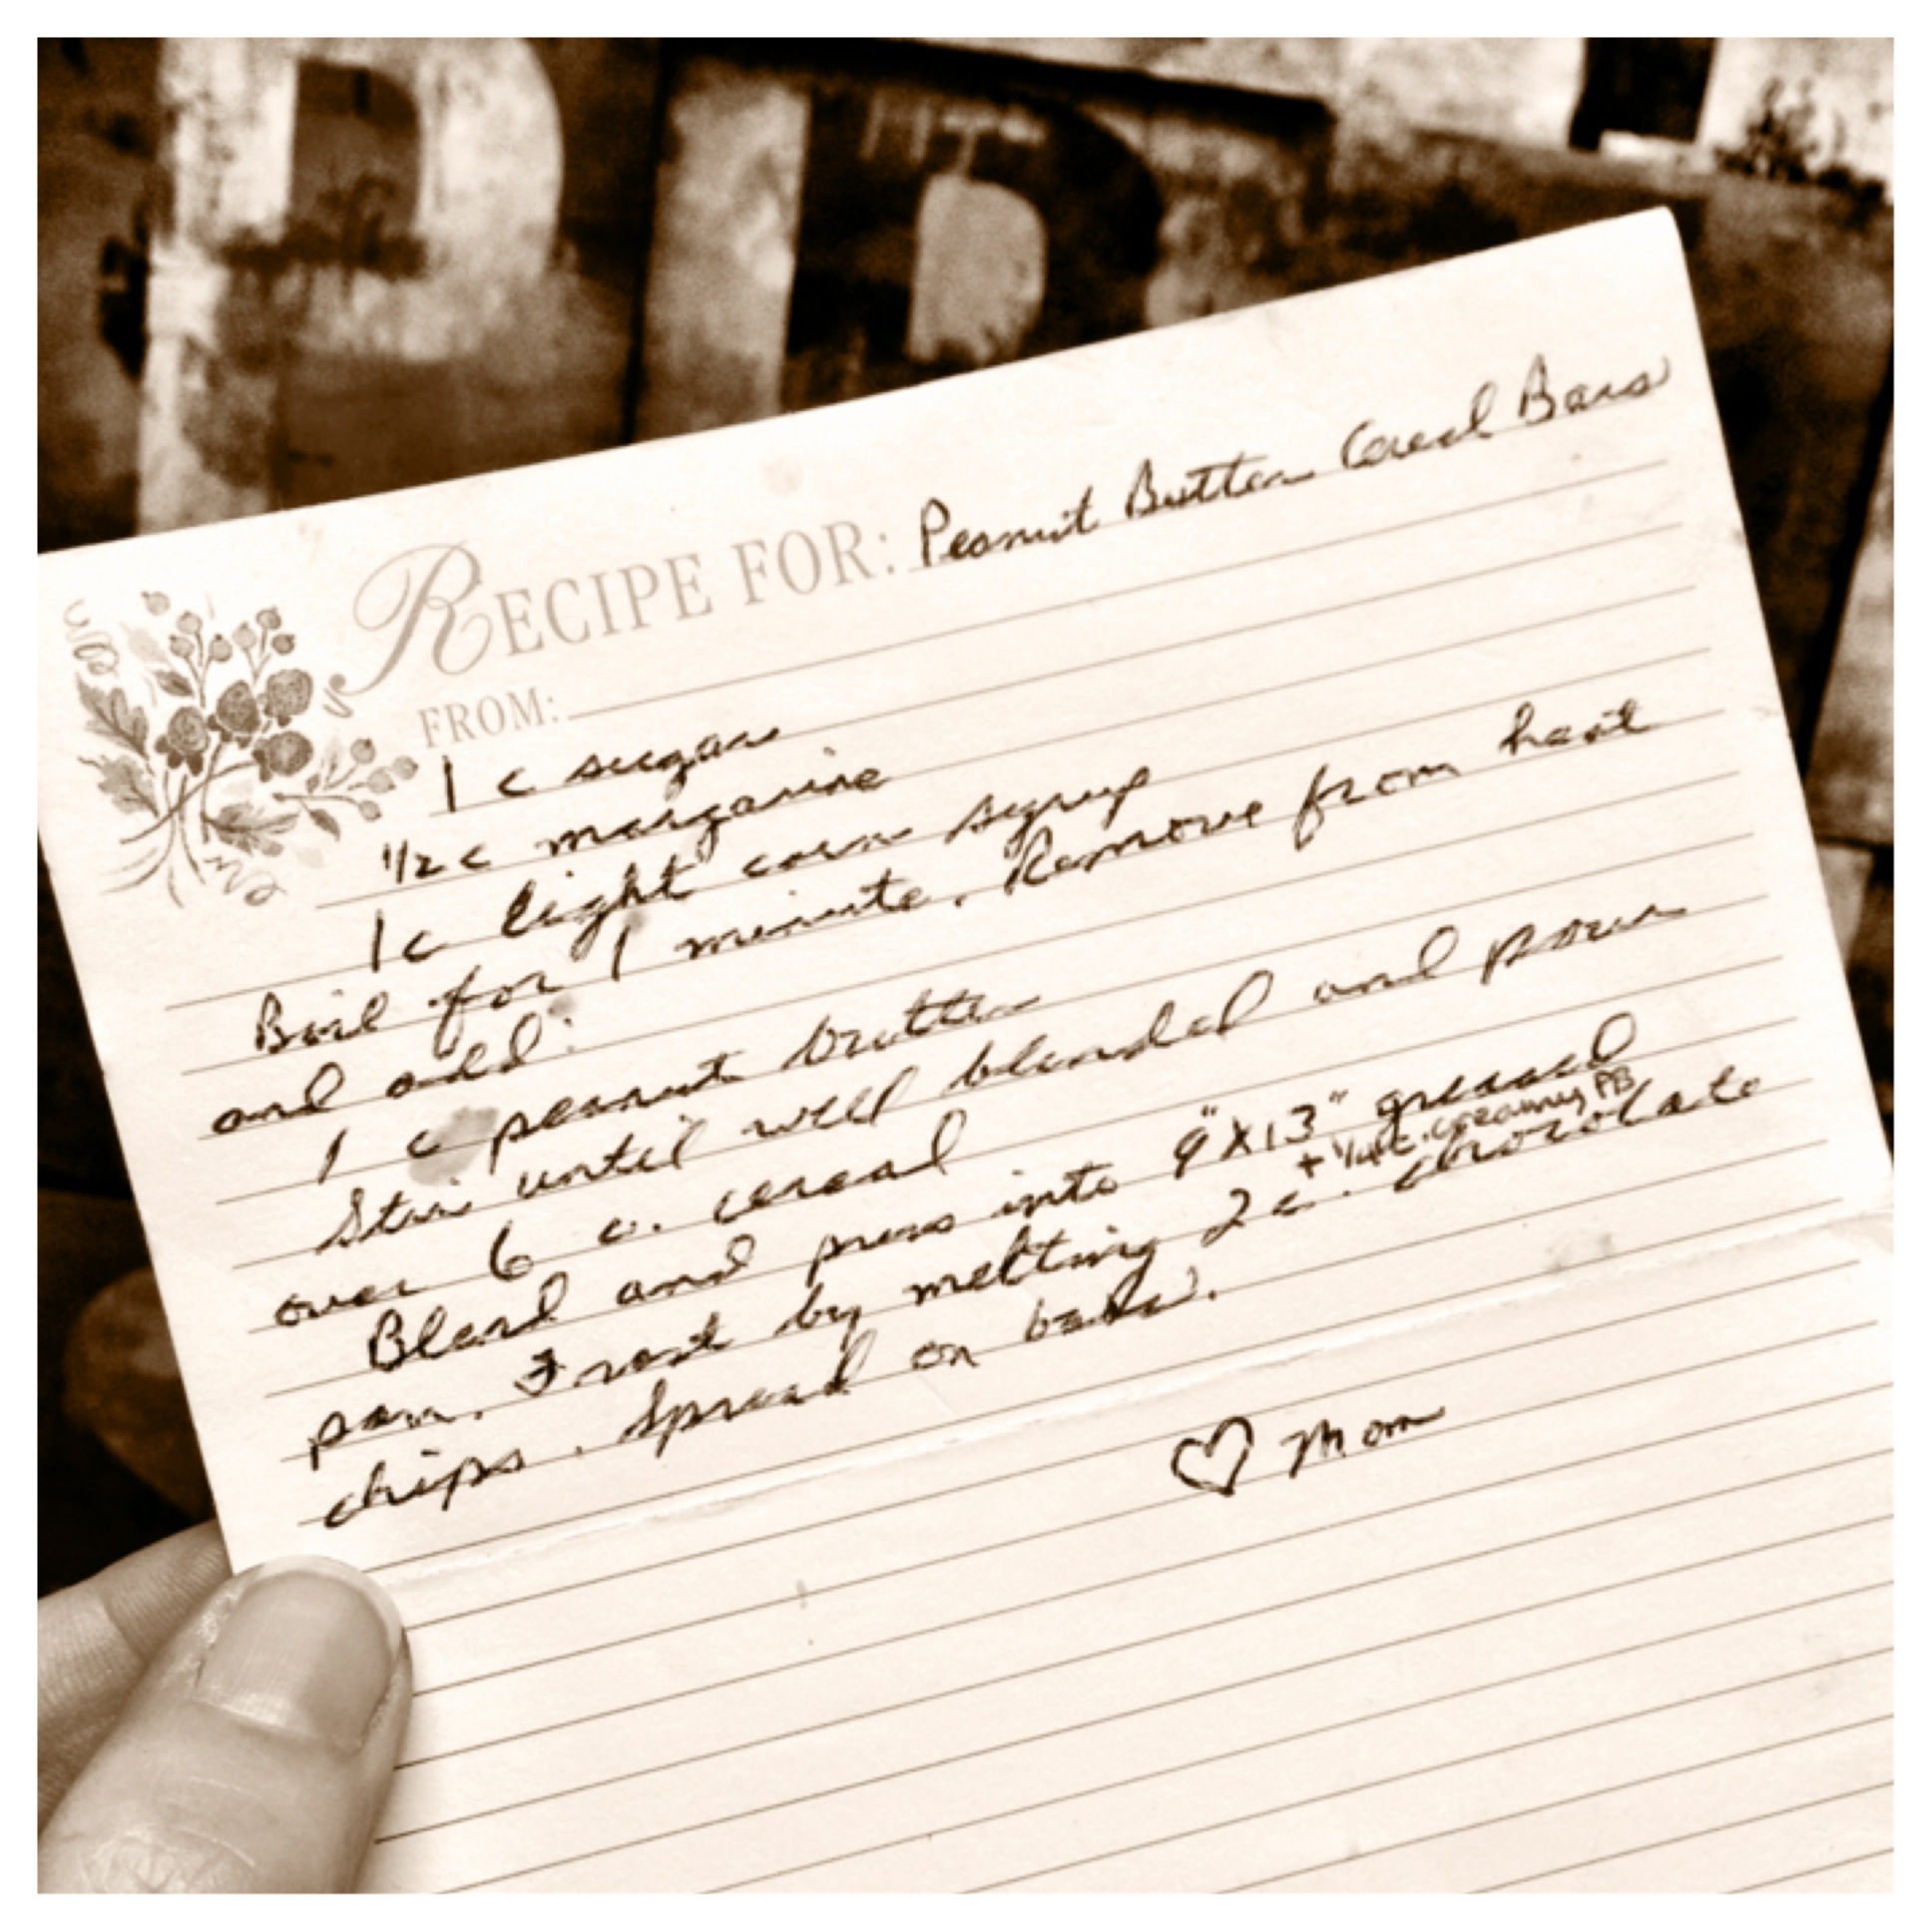 RECIPE FOR: Peanut Butter Cereal Bars
FROM:
1 c sugar
1/2 c margarine
1 c light corn syrup
Boil for 1 minute. Remove from heat
and add:
1 c peanut butter
Stir until well blended and pour
over 6 c. cereal
Blend and press into 9" X 13" greased
+ 1/4 c. creamy PB
pan. Frost by melting 2 c. chocolate
chips. Spread on bars.
♡ Mom